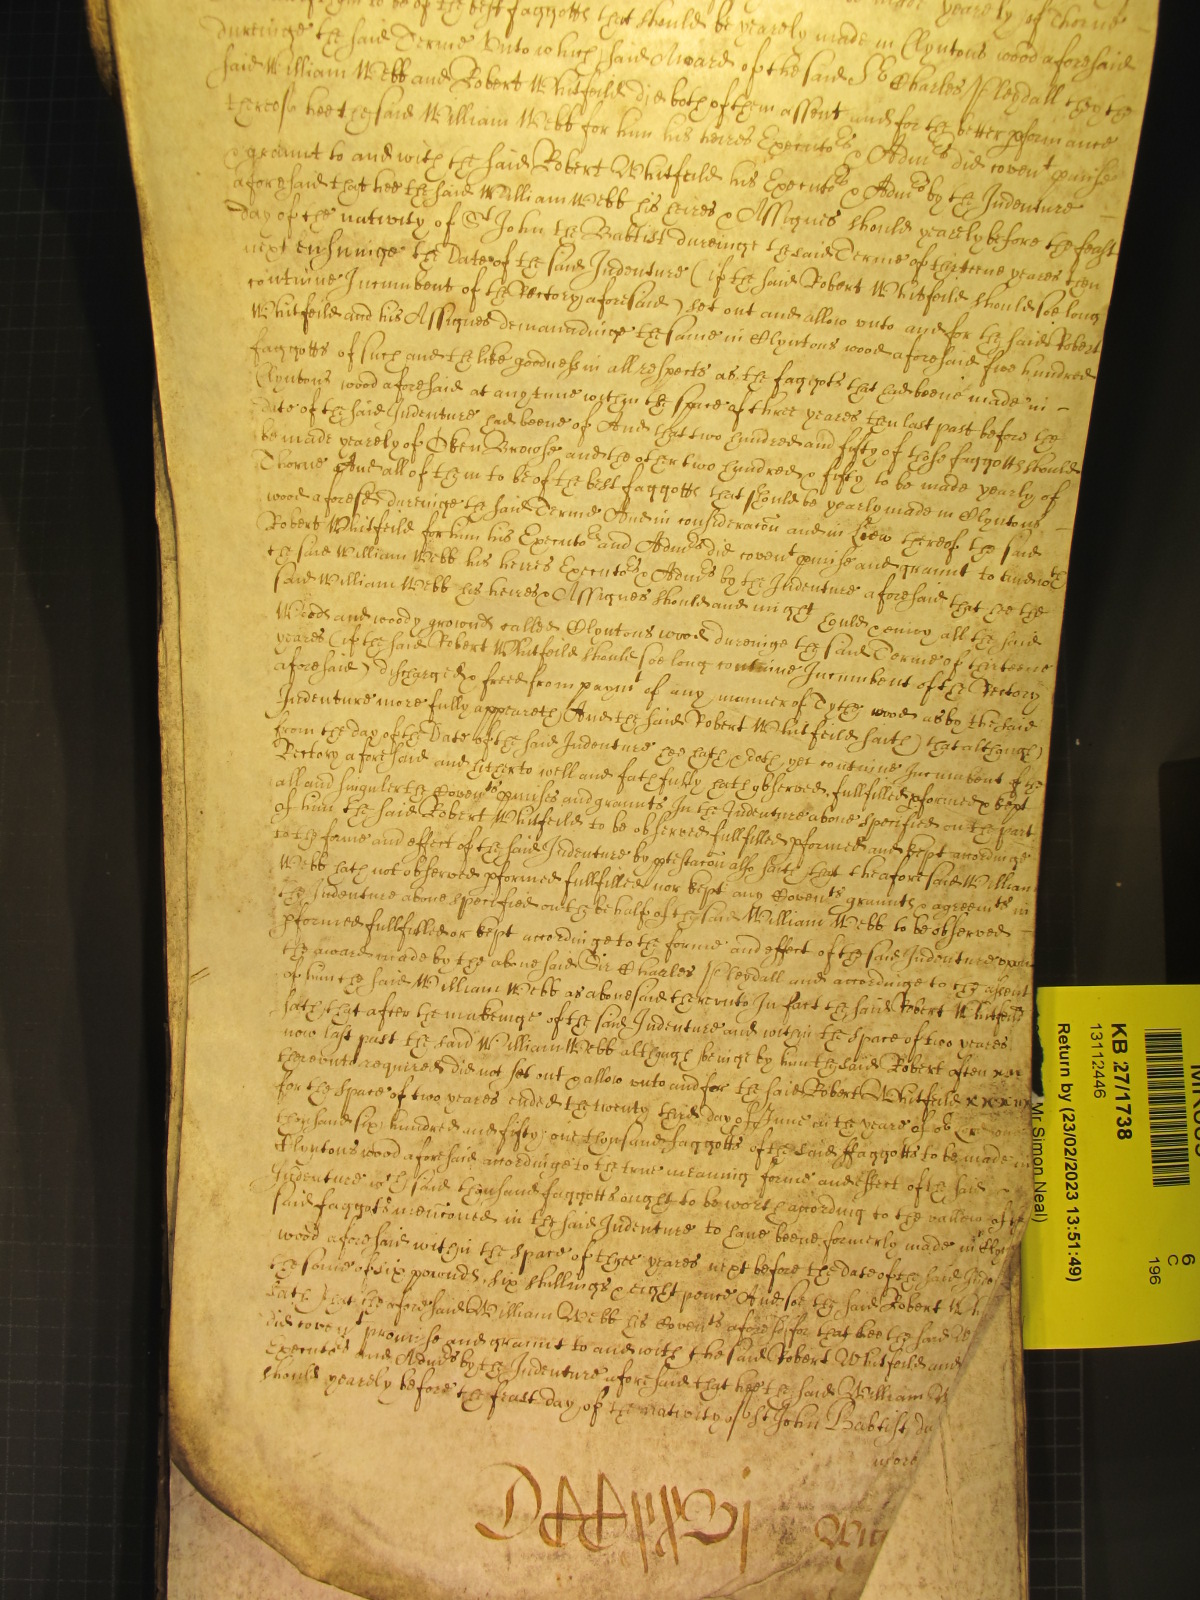 to be of the best faggotts that should be yearely made yearely of Thorne
dureinge the said Terme Unto which said Award of the said Sr Charles Pleydall they the
said William Webb and Robert Whitfeild did both of them assent and for the better pformance
thereof hee the said William Webb for him his heires Executors & Admrs did covent pmise
& graunt to and with the said Robert Whitfeild his Executors & Admrs by the Indenture
aforesaid that hee the said William Webb his heires & Assignes should yearely before the feast
day of the nativity of St John the Baptist dureinge the said Terme of thirteene yeares then
next ensuinge the Date of the said Indenture (if the said Robert Whitfeild should soe long
continue Incumbent of the Rectory aforesaid) set out and allow unto and for the said Robert
Whitfeild and his Assignes demaundinge the same in Clyntons wood aforesaid five hundred
faggotts of such and the like goodness in all respects as the faggots that had beene made in
Clyntons wood aforesaid at any time within the space of three yeares then last past before the
date of the said Indenture had beene of And that two hundred and fifty of those faggotts should
be made yearely of Oken Browse and the other two hundred & fifty to be made yearly of
Thorne And all of them to be of the best faggotts that should be yearly made in Clyntons
wood aforesed dureinge the said Terme And in consideracon and in liew thereof the said
Robert Whitfeild for him his Executors and Admrs did covent pmise and graunt to and with
the said William Webb his heires Executors & Admrs by the Indenture aforesaid that he the
said William Webb his heires & Assignes should and might hould & enioy all the said
Woods and woody grownds called Clyntons wood dureinge the said Terme of thirteene
yeares (if the said Robert Whitfeild should soe long continue Incumbent of the Rectory
aforesaid) discharged & freed from paymt of any manner of Tythe wood as by the said
Indenture more fully appeareth And the said Robert Whitfeild saith that although
from the day of the Date of the said Indenture hee hath & doth yet continue Incumbent of the
Rectory aforesaid and hitherto well and faithfully hath observed fullfilled pformed & kept
all and singuler the Covents pmises and graunts In the Indenture above specified on the part
of him the said Robert Whitfeild to be observed fullfilled pformed and kept accordinge
to the forme and effect of the said Indenture by ptestacon also saith that the aforesaid William
Webb hath not observed pformed fullfilled nor kept any Covents graunts & agreemts in
the Indenture above specified on the behalf of the said William Webb to be observed
pformed fullfilled or kept accordinge to the forme and effect of the said Indenture
the award made by the abovesaid Sir Charles Pleydall and accordinge to the assent
of him the said William Webb as abovesaid thereunto In fact the said Robert Whitfeild
saith that after the makeinge of the said Indenture and within the space of two yeares
now last past the said William Webb although beinge by him the said Robert often
thereunto required did not set out & allow unto and for the said Robert Whitfeild
for the space of two yeares ended the twenty third day of June in the yeare of our one
thousand six hundred and fifty one thousand faggotts of the said ffaggotts to be made in
Clyntons wood aforesaid accordinge to the true meaning forme and effect of the said
Indenture wch said thousand faggotts ought to be worth according to the vallew of the
said faggots mencioned in the said Indenture to have beene formerly made in
wood aforesaid within the space of three yeares next before the date of the said
the some of six pounds six shillings & eight pence And soe the said Robert
saith that the aforesaid William Webb his Covents aforesd for that hee the said
did covent promise and graunt to and with the said Robert Whitfeild and
Executors and Admrs by the Indenture aforesaid that hee the said William
should yearely before the feast day of the nativity of St John Baptist
more
KB 27/1738
13112446
Return by (23/02/2023 13:51:49)
Mr Simon Neal)
6
C
196